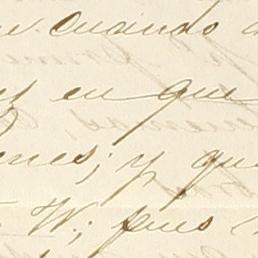 cuando
en que
; y que
W.; pues